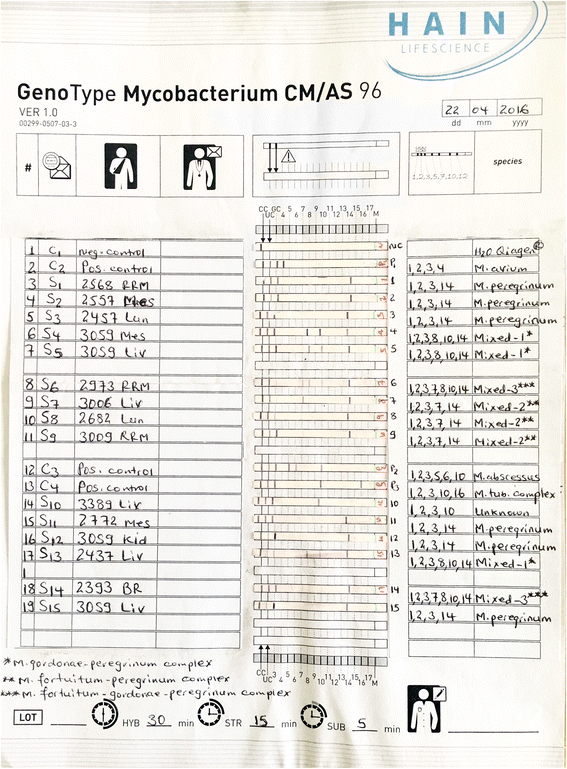 HAIN
LIFESCIENCE
GenoType Mycobacterium CM/AS 96
VER 1.0
00299-0507-03-3
22 04 2016
dd mm yyyy
#
species
1,2,3,5,7,10,12
CC GC 5 7 9 11 13 15 17
UC 4 6 8 10 12 14 16 M
1 C1 neg-control nuc H2O Qiagen
2 C2 Pos. control P1 1,2,3,4 M.avium
3 S1 2568 RRM 1 1,2,3,14 M.peregrinum
4 S2 2557 Mes 2 1,2,3,14 M.peregrinum
5 S3 2457 Lun 3 1,2,3,14 M.peregrinum
6 S4 3059 Mes 4 1,2,3,8,10,14 Mixed-1*
7 S5 3059 Liv 5 1,2,3,8,10,14 Mixed-1*
8 S6 2973 RRM 6 1,2,3,7,8,10,14 Mixed-3***
9 S7 3006 Liv 7 1,2,3,7,14 Mixed-2**
10 S8 2682 Lun 8 1,2,3,7,14 Mixed-2**
11 S9 3009 RRM 9 1,2,3,7,14 Mixed-2**
12 C3 Pos. control P2 1,2,3,5,6,10 M.abscessus
13 C4 Pos. control P3 1,2,3,10,16 M.tub. complex
14 S10 3389 Liv 10 1,2,3,10 Unknown
15 S11 2772 Mes 11 1,2,3,14 M.peregrinum
16 S12 3059 Kid 12 1,2,3,14 M.peregrinum
17 S13 2437 Liv 13 1,2,3,8,10,14 Mixed-1*
1
18 S14 2393 BR 14 1,2,3,7,8,10,14 Mixed-3***
19 S15 3059 Liv 15 1,2,3,14 M.peregrinum
*M.gordonae-peregrinum complex
**M. fortuitum-peregrinum complex
***M. fortuitum-gordonae-peregrinum complex
LOT HYB 30 min STR 15 min SUB 5 min